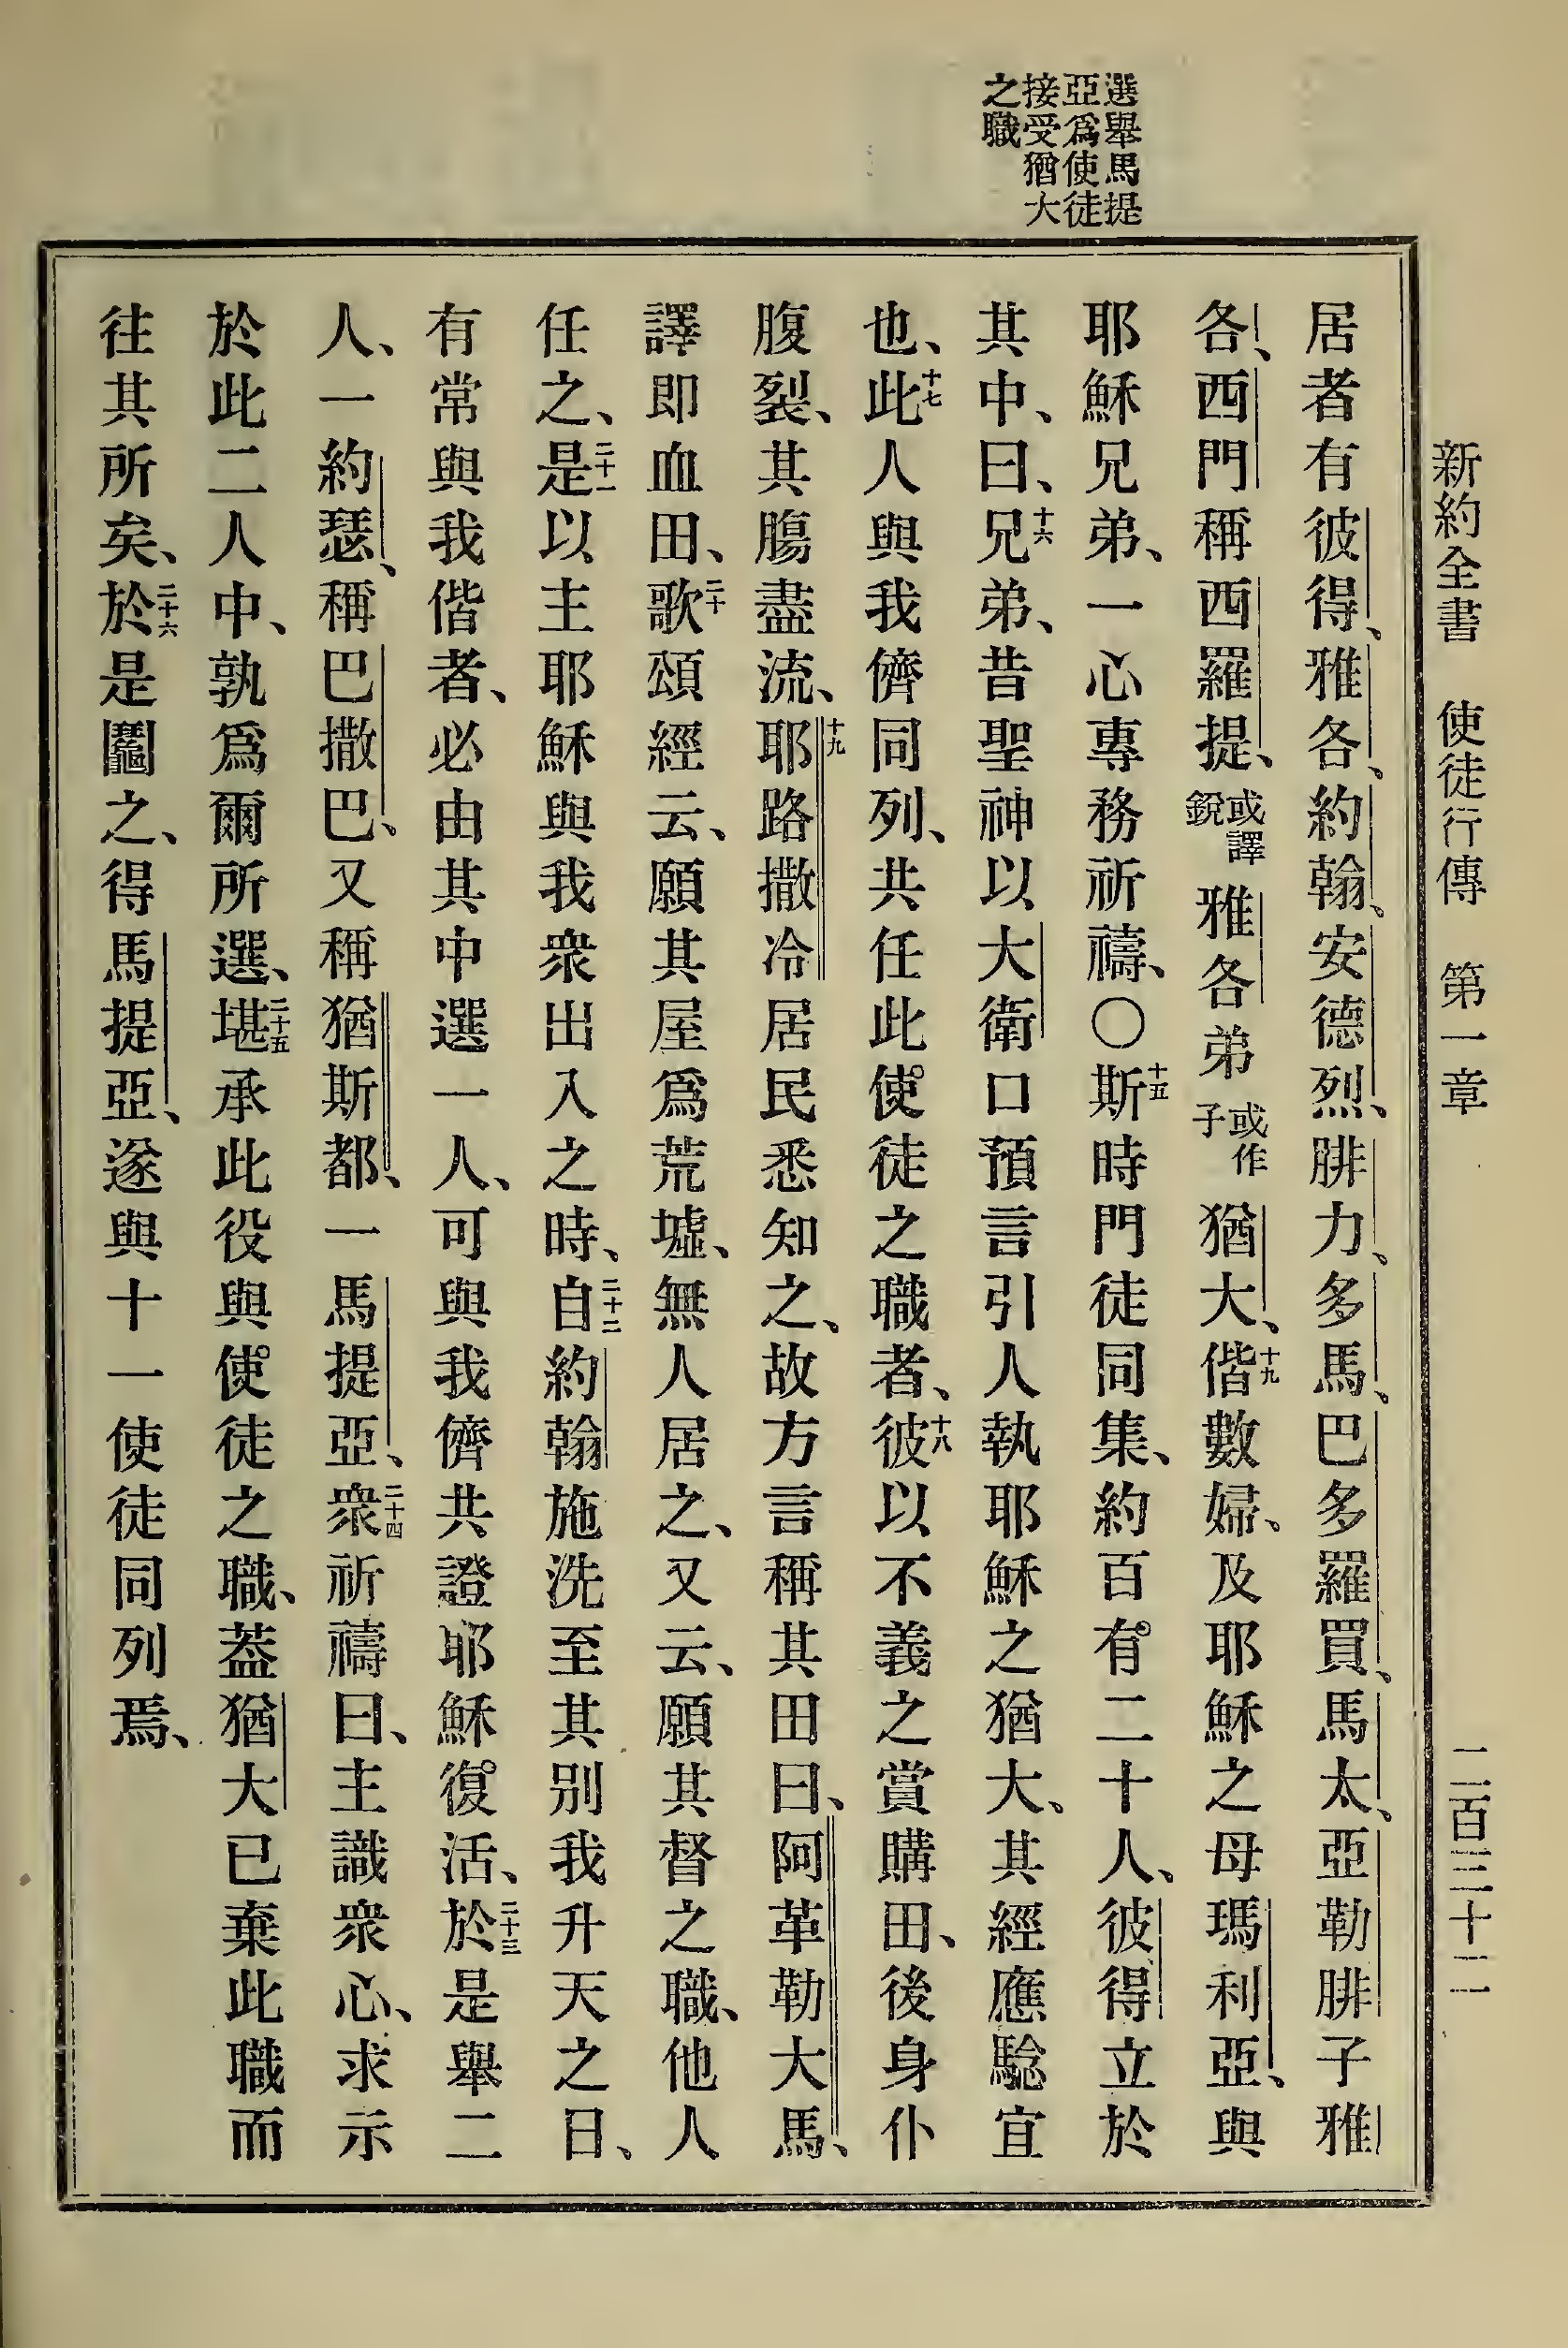 新約全書 使徒行傳 第一章 二百三十二
選舉馬提
亞爲使徒
接受猶大
之職
居者有彼得、雅各、約翰、安德烈、腓力、多馬、巴多羅買、馬太、亞勒腓子雅
各、西門稱西羅提、或譯銳雅各弟或作子猶大、十九偕數婦、及耶穌之母瑪利亞、與
耶穌兄弟、一心專務祈禱、〇十五斯時門徒同集、約百有二十人、彼得立於
其中、曰、十六兄弟、昔聖神以大衛口預言引人執耶穌之猶大、其經應騐宜
也、十七此人與我儕同列、共任此使徒之職者、十八彼以不義之賞購田、後身仆
腹裂、其腸盡流、十九耶路撒冷居民悉知之、故方言稱其田曰、阿革勒大馬、
譯即血田、二十歌頌經云、願其屋爲荒墟、無人居之、又云、願其督之職、他人
任之、二十一是以主耶穌與我衆出入之時、二十二自約翰施洗至其別我升天之日、
有常與我偕者、必由其中選一人、可與我儕共證耶穌復活、二十三於是舉二
人、一約瑟、稱巴撒巴、又稱猶斯都、一馬提亞、二十四衆祈禱曰、主識衆心、求示
於此二人中、孰爲爾所選、二十五堪承此役與使徒之職、蓋猶大已棄此職而
往其所矣、二十六於是鬮之、得馬提亞、遂與十一使徒同列焉、